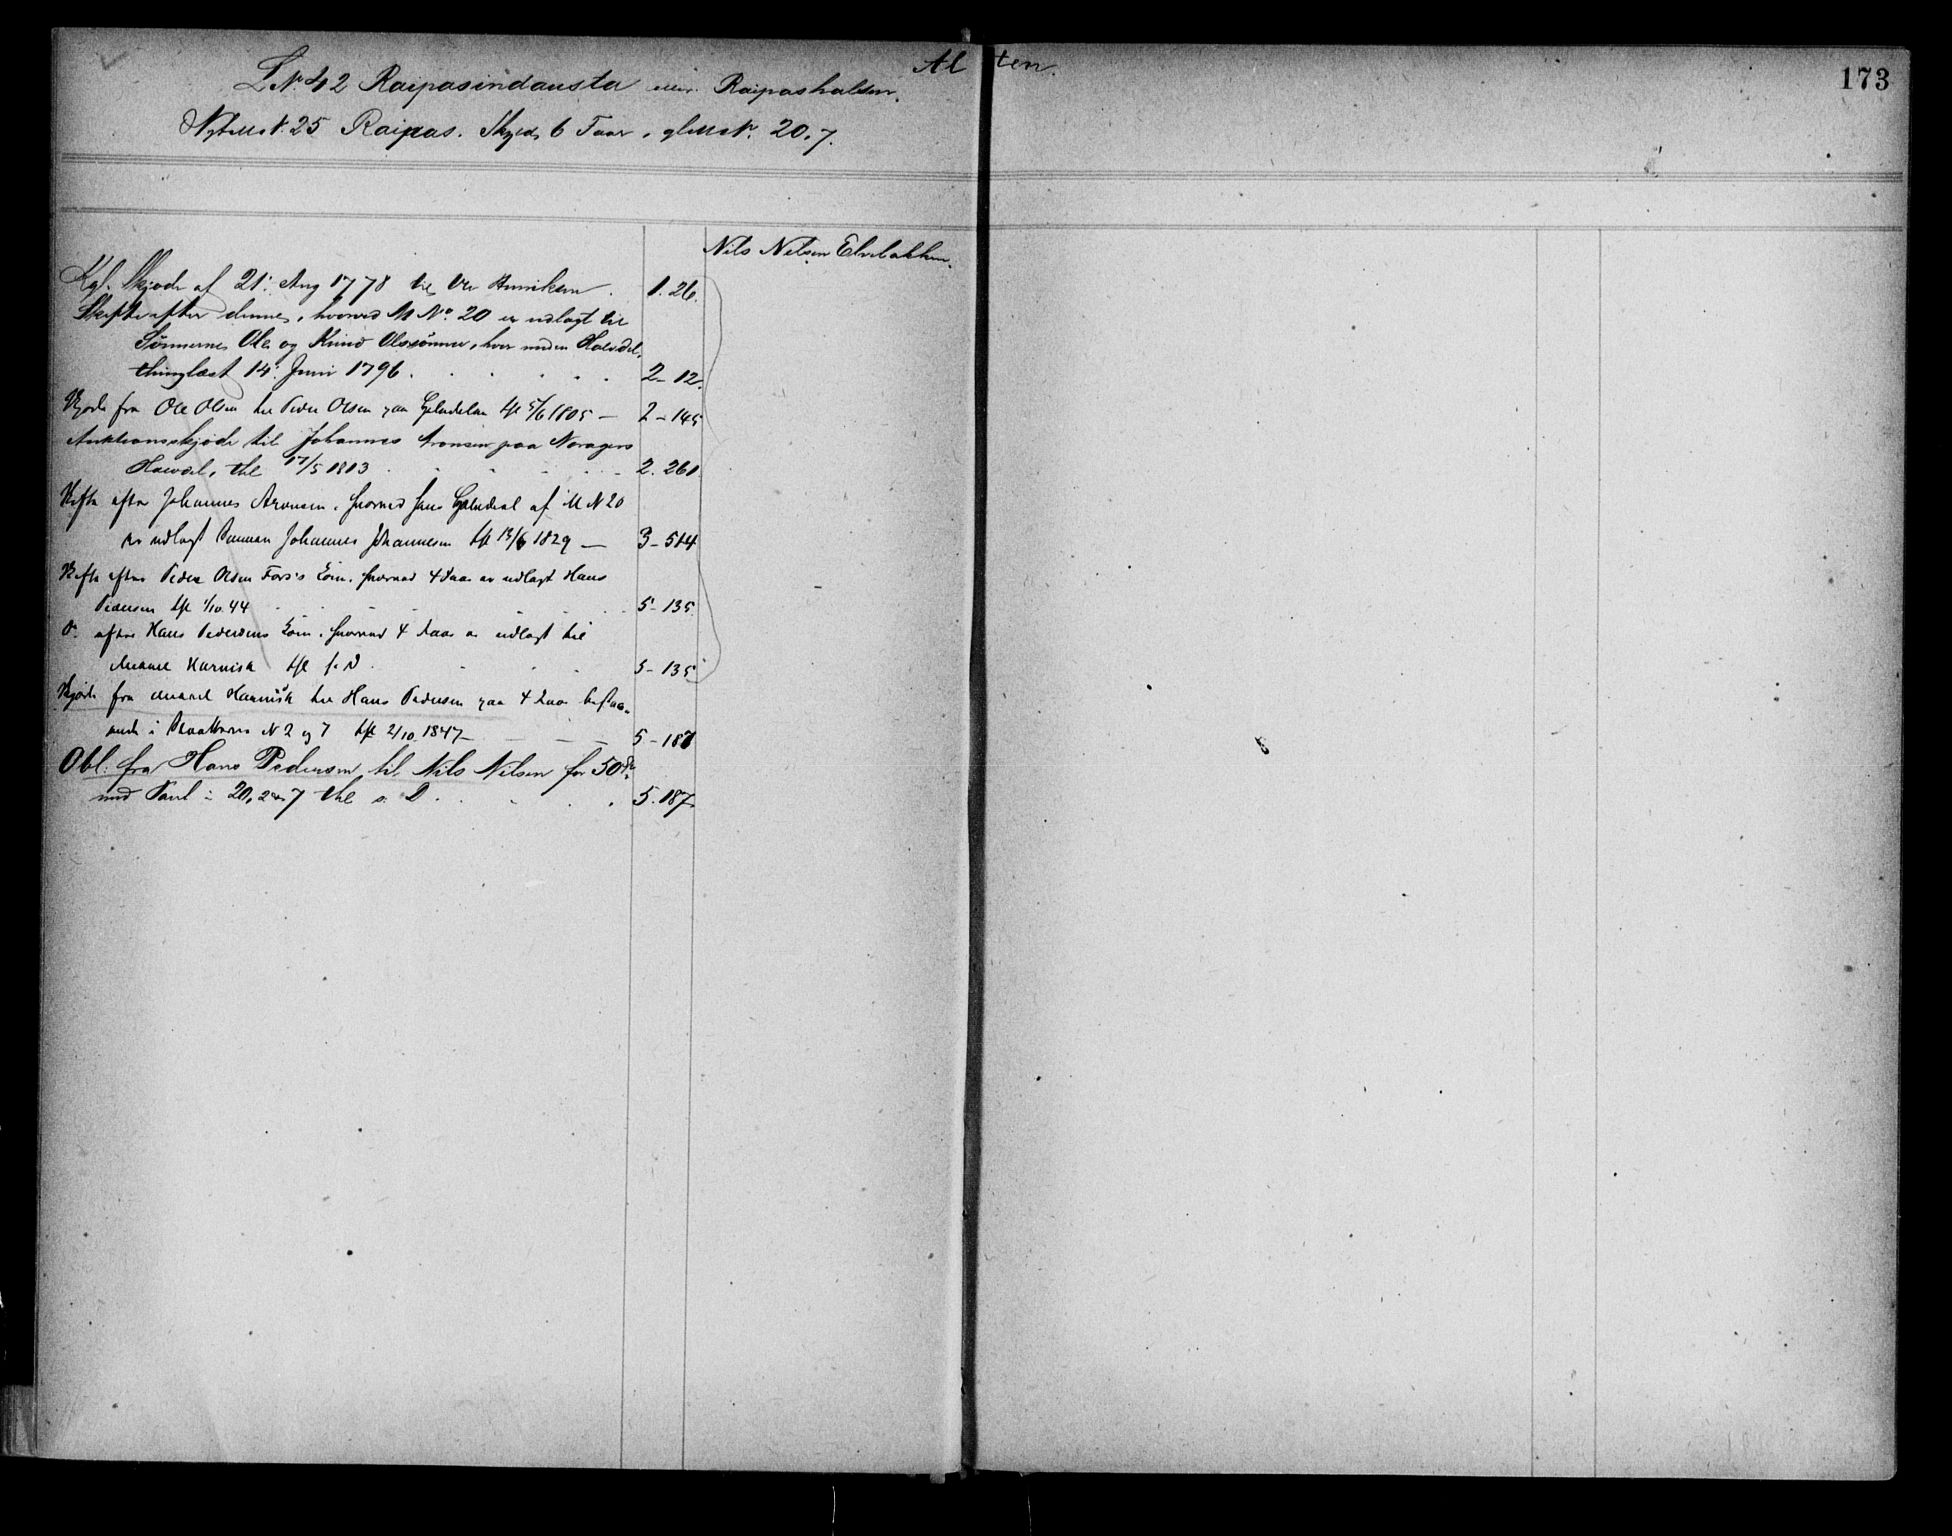 Alten.
173
L.N. 42 Raipasindausta eller Raipashalsen.
N. 25 Raipas. Skyld, 6 Taar, gl. M.N. 20.7.
Nils Nilsen Elvebakken.
Kgl. Skjøde af 21. Aug 1778 til Ole Henriksen . 1. 26.
Skifte efter dennes, hvorved M No. 20 er udlagt til
Sønnerne Ole og Knud Olssønner, hver under Halvdel,
thinglæst 14. Juni 1796 . . . . . 2 - 12.
Skjøde fra Ole Olsen til Peder Olsen paa Halvdelen thl 5/6 1805 — 2 - 145
Auktionsskjøde til Johannes Aronsen paa
Halvdel, thl 17/5 1813 . . . . . 2. 260.
Skifte efter Johannes Aronsen, hvorved hans Halvdeel af M N 20
er udlagt Sønnen Johannes Johannesen thl 13/6 1829 — 3 - 514
Skifte efter Peder Olsen hvorved 4 Taar er udlagt Hans
Pedersen thl 1/10 44 . . . . . 5 - 135
D. efter Hans Pedersens hvorved 4 Taar er udlagt til
thl s. D . . . . 5 - 135
Skjøde fra til Hans Pedersen paa 4 Taar
i N 2 og 7 thl 2/10 1847 — 5 - 187
Obl. fra Hans Pedersen til Nils Nilsen for 50
med Pant i 20, 2 og 7 thl s. D . . . . 5. 187.